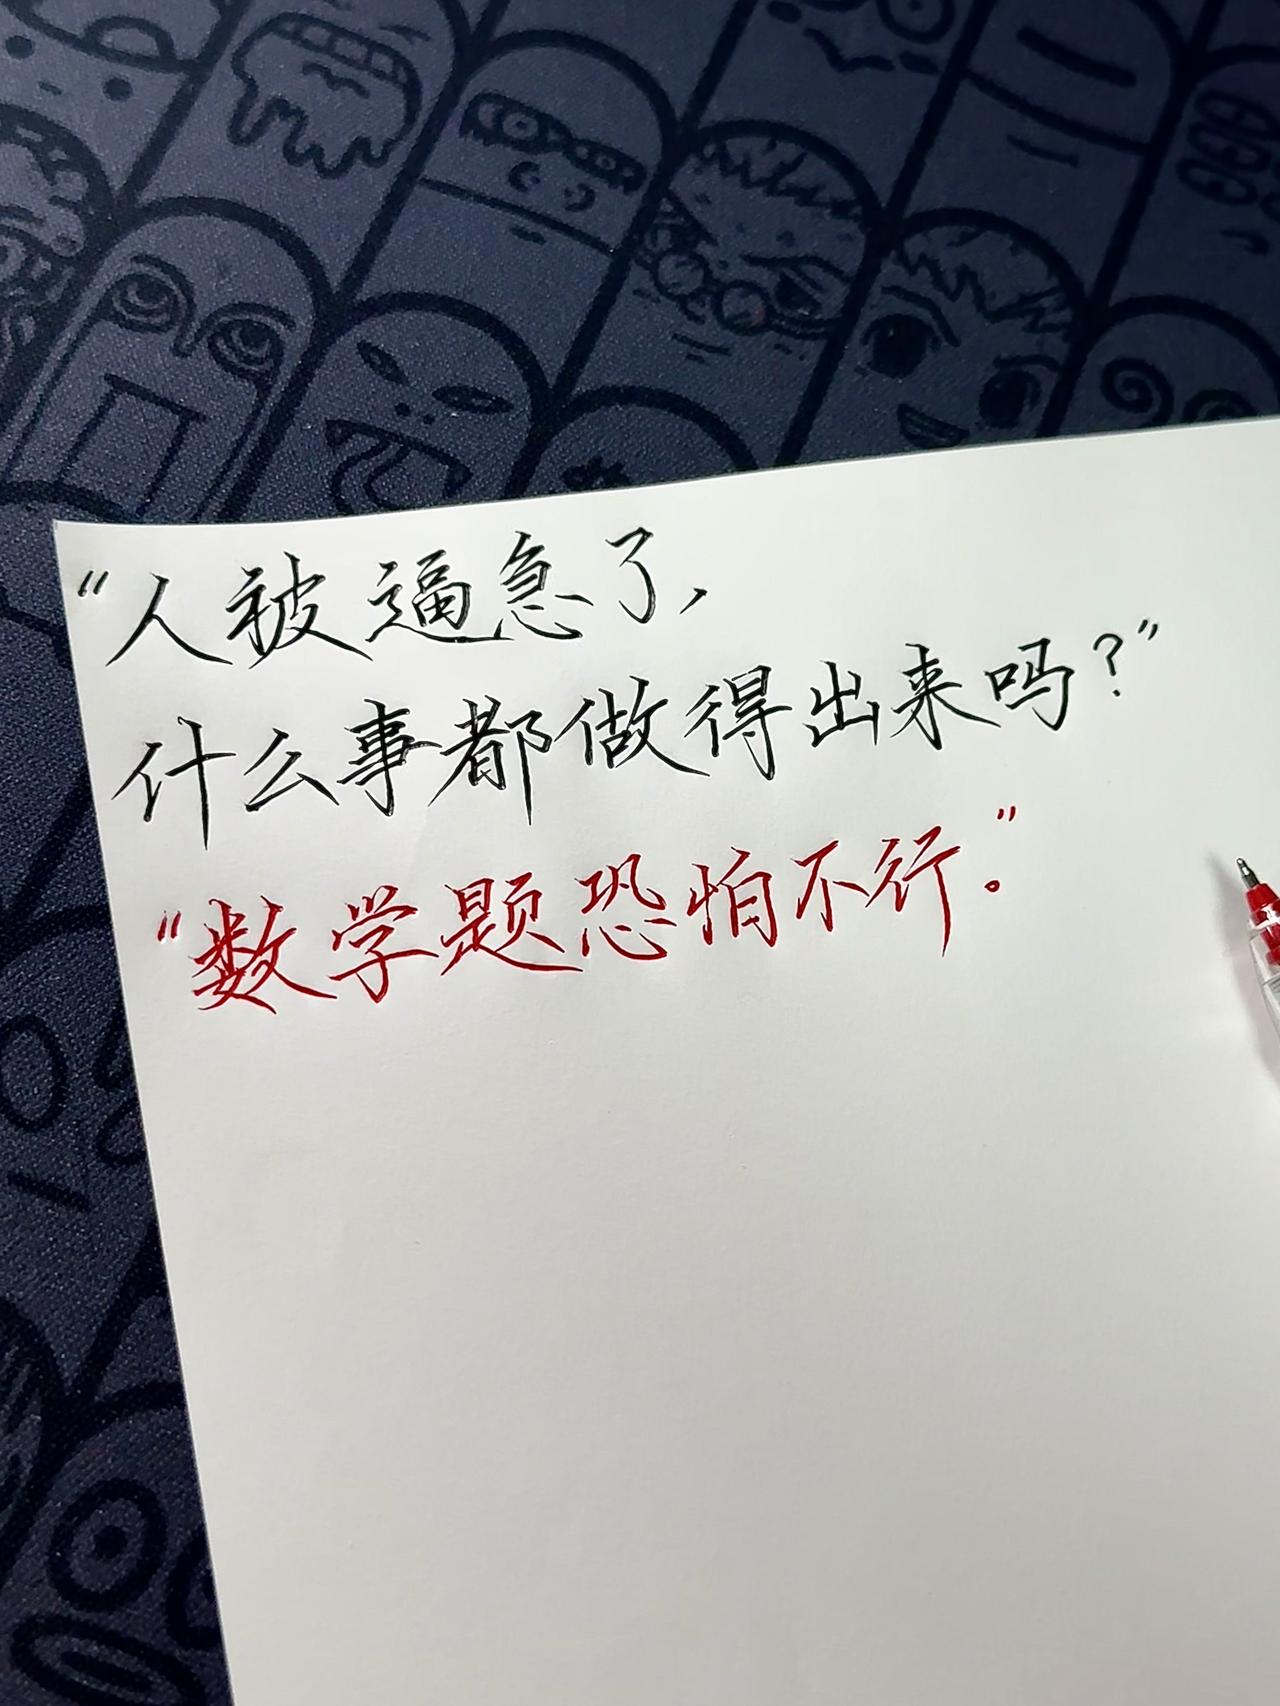 “人被逼急了，
什么事都做得出来吗？”
“数学题恐怕不行。”